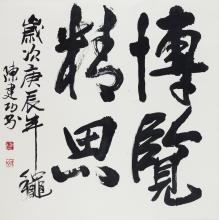 博覽
精思
歲次庚辰年
陳建功書